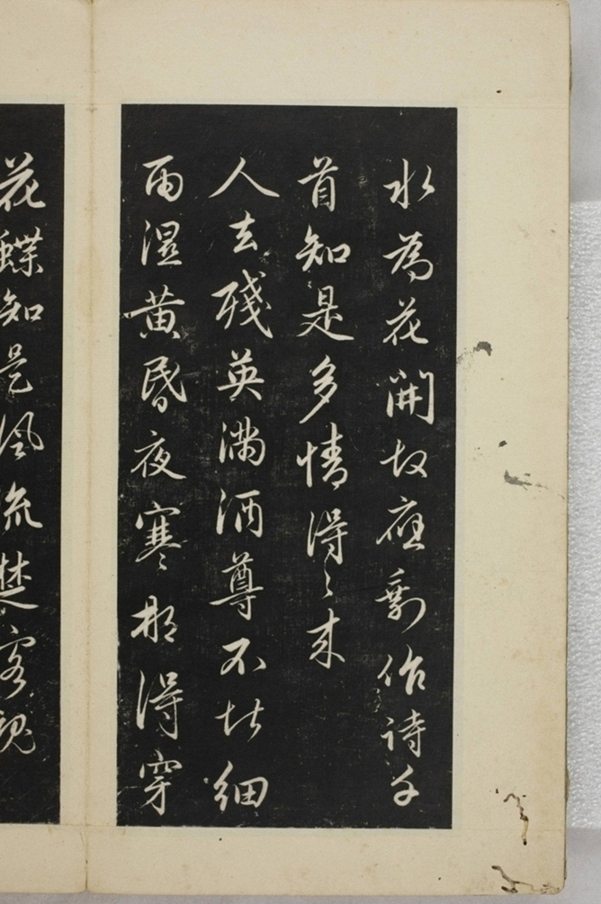 水為花開故應剩作詩千
首知是多情得〻来
人去殘英滿酒尊不堪細
雨濕黄昏夜寒那得穿
花蝶知是風流楚客魂